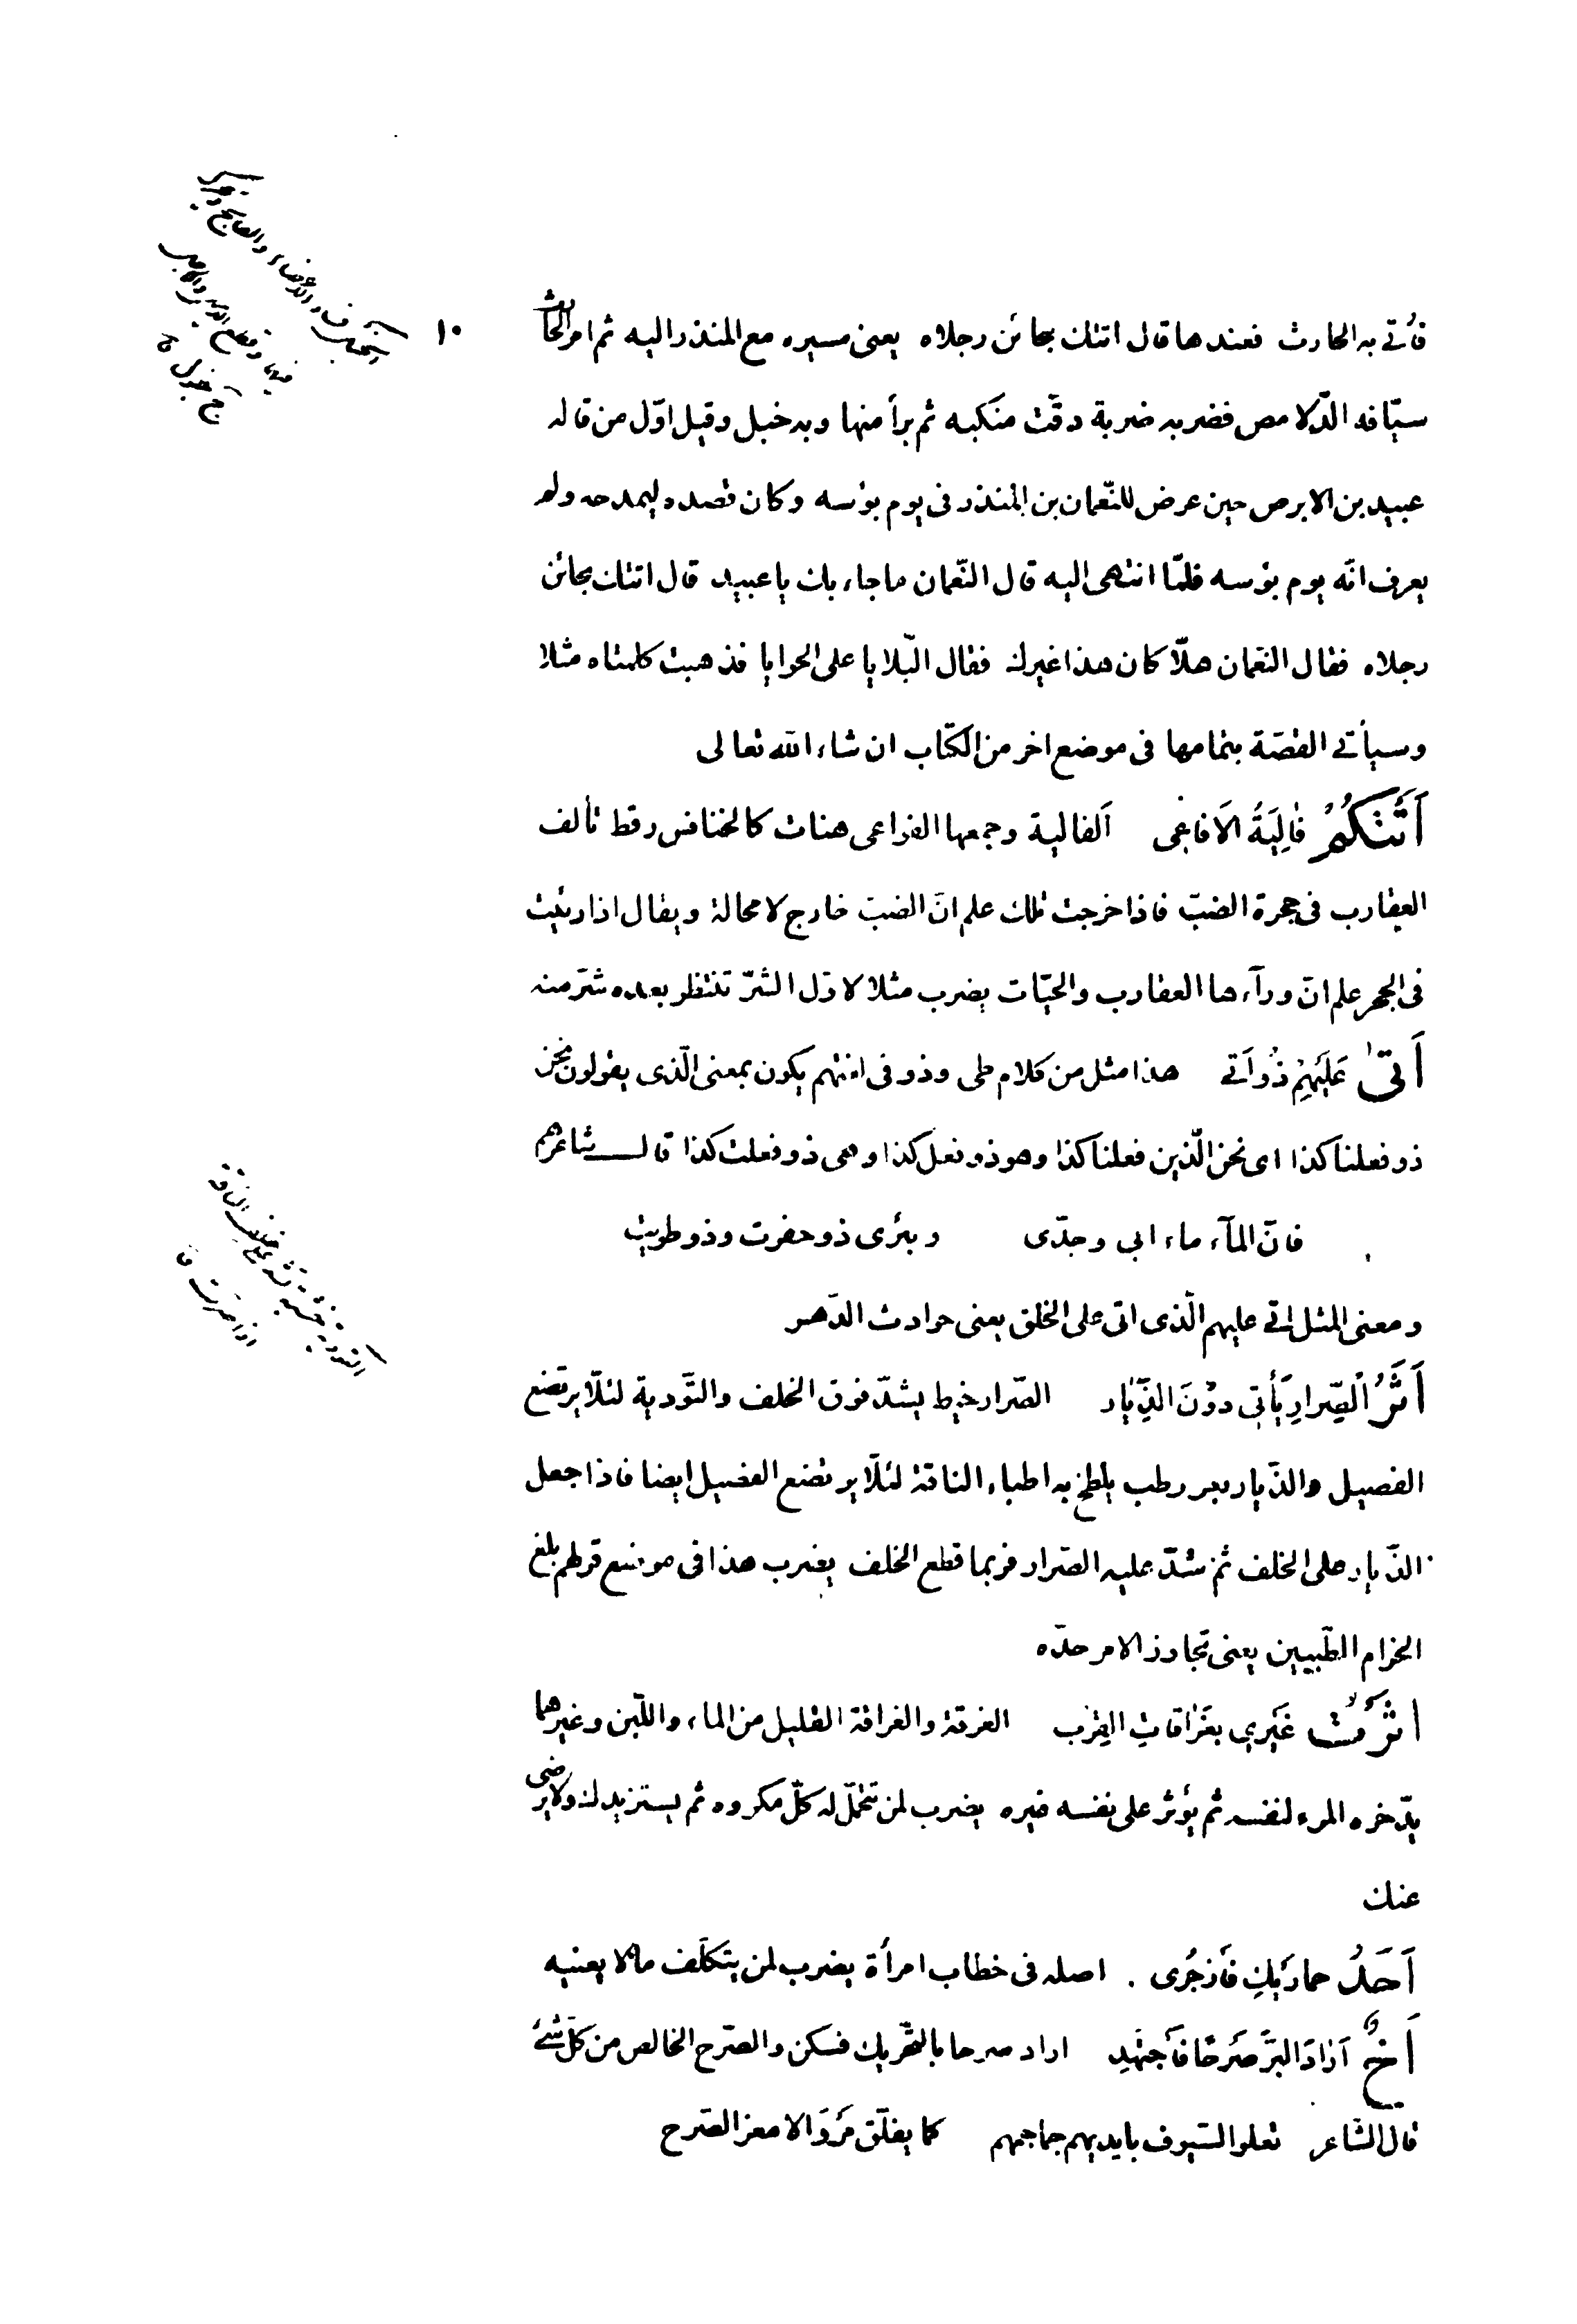 ١٠
فأتي به الحارث فعندها قال اتتك بحائن رجلاه يعنى مسيره مع المنذر اليه ثم امر الحارث
سيّافه الدّلامص فضربه ضربة دقّت منكبه ثم برأ منها وبه خبل وقيل اوّل من قاله
عبيد بن الابرص حين عرض للنّعمان بن المنذر فى يوم بؤسه وكان قصده ليمدحه ولم
يعرف انّه يوم بؤسه فلمّا انتهى اليه قال النّعمان ما جاء بك يا عبيد قال اتتك بحائن
رجلاه فقال النعمان هلّا كان هذا غيرك فقال البلايا على الحوايا فذهبت كلمتاه مثلا
وسيأتى القصّة بتمامها فى موضع اخر من الكتاب ان شاء الله تعالى
أَتَتْكُمْ فَالِيَةُ الاَفَاعِى الفالية وجمعها الفوالى هنات كالخنافس رقط تألف
العقارب فى جحرة الضبّ فاذا خرجت تلك علم انّ الضبّ خارج لا محالة ويقال اذا رئيت
فى الجحر علم انّ ورآءها العقارب والحيّات يضرب مثلا لاوّل الشرّ تنتظر بعده شرّ منه
أَتىٰ عَلَيْهِمْ ذُو أَتَى هذا مثل من كلام طى وذو فى لغتهم يكون بمعنى الّذى يقولون نحن
ذو فعلنا كذا اى نحن الّذين فعلنا كذا وهو ذو فعل كذا وهى ذو فعلت كذا قال شاعرهم
فانّ المآء ماء ابى وجدّى وبئرى ذو حفرت وذو طويت
ومعنى المثل اتى عليهم الّذى اتى على الخلق يعنى حوادث الدّهر
أَثَرُ الصِّرارِ يَأْتِى دُوْنَ الذِّيَار الصّرار خيط يشدّ فوق الخلف والتّودية لئلّا يرتضع
الفصيل والذّيار بعر رطب يلطخ به اطباء الناقة لئلّا يرتضع الفصيل ايضا فاذا جعل
الذّيار على الخلف ثم شدّ عليه الصّرار فربما قطع الخلف يضرب هذا فى موضع قولهم بلغ
الحزام الطّبيين يعنى تجاوز الامر حدّه
أثَرْتُ غَيْرِي بِغُرَاقاتِ القِرَب الغرقة والغراقة القليل من الماء واللّبن وغيرهما
يدّخره المرء لنفسه ثم يؤثر على نفسه غيره يضرب لمن تتحمّل له كلّ مكروه ثم يستزيدك ولا يرضى
عنك
أَحَدُ حماريكِ فَازجُرى اصله فى خطاب امرأة يضرب لمن يتكلّف ما لا يعنيه
أَخٌ أَرَادَ البِرَّ صَرْحًا فَاجتَهَد اراد صرحا بالتّحريك فسكن والصّرح الخالص من كلّ شئ
قال الشاعر تعلو السّيوف بايديهم جماجمهم كما يفلّق مَرْوَ الامعز الصّرح
التودية خشبة تشدّ على خلف الناقة
اذا صرّت ق